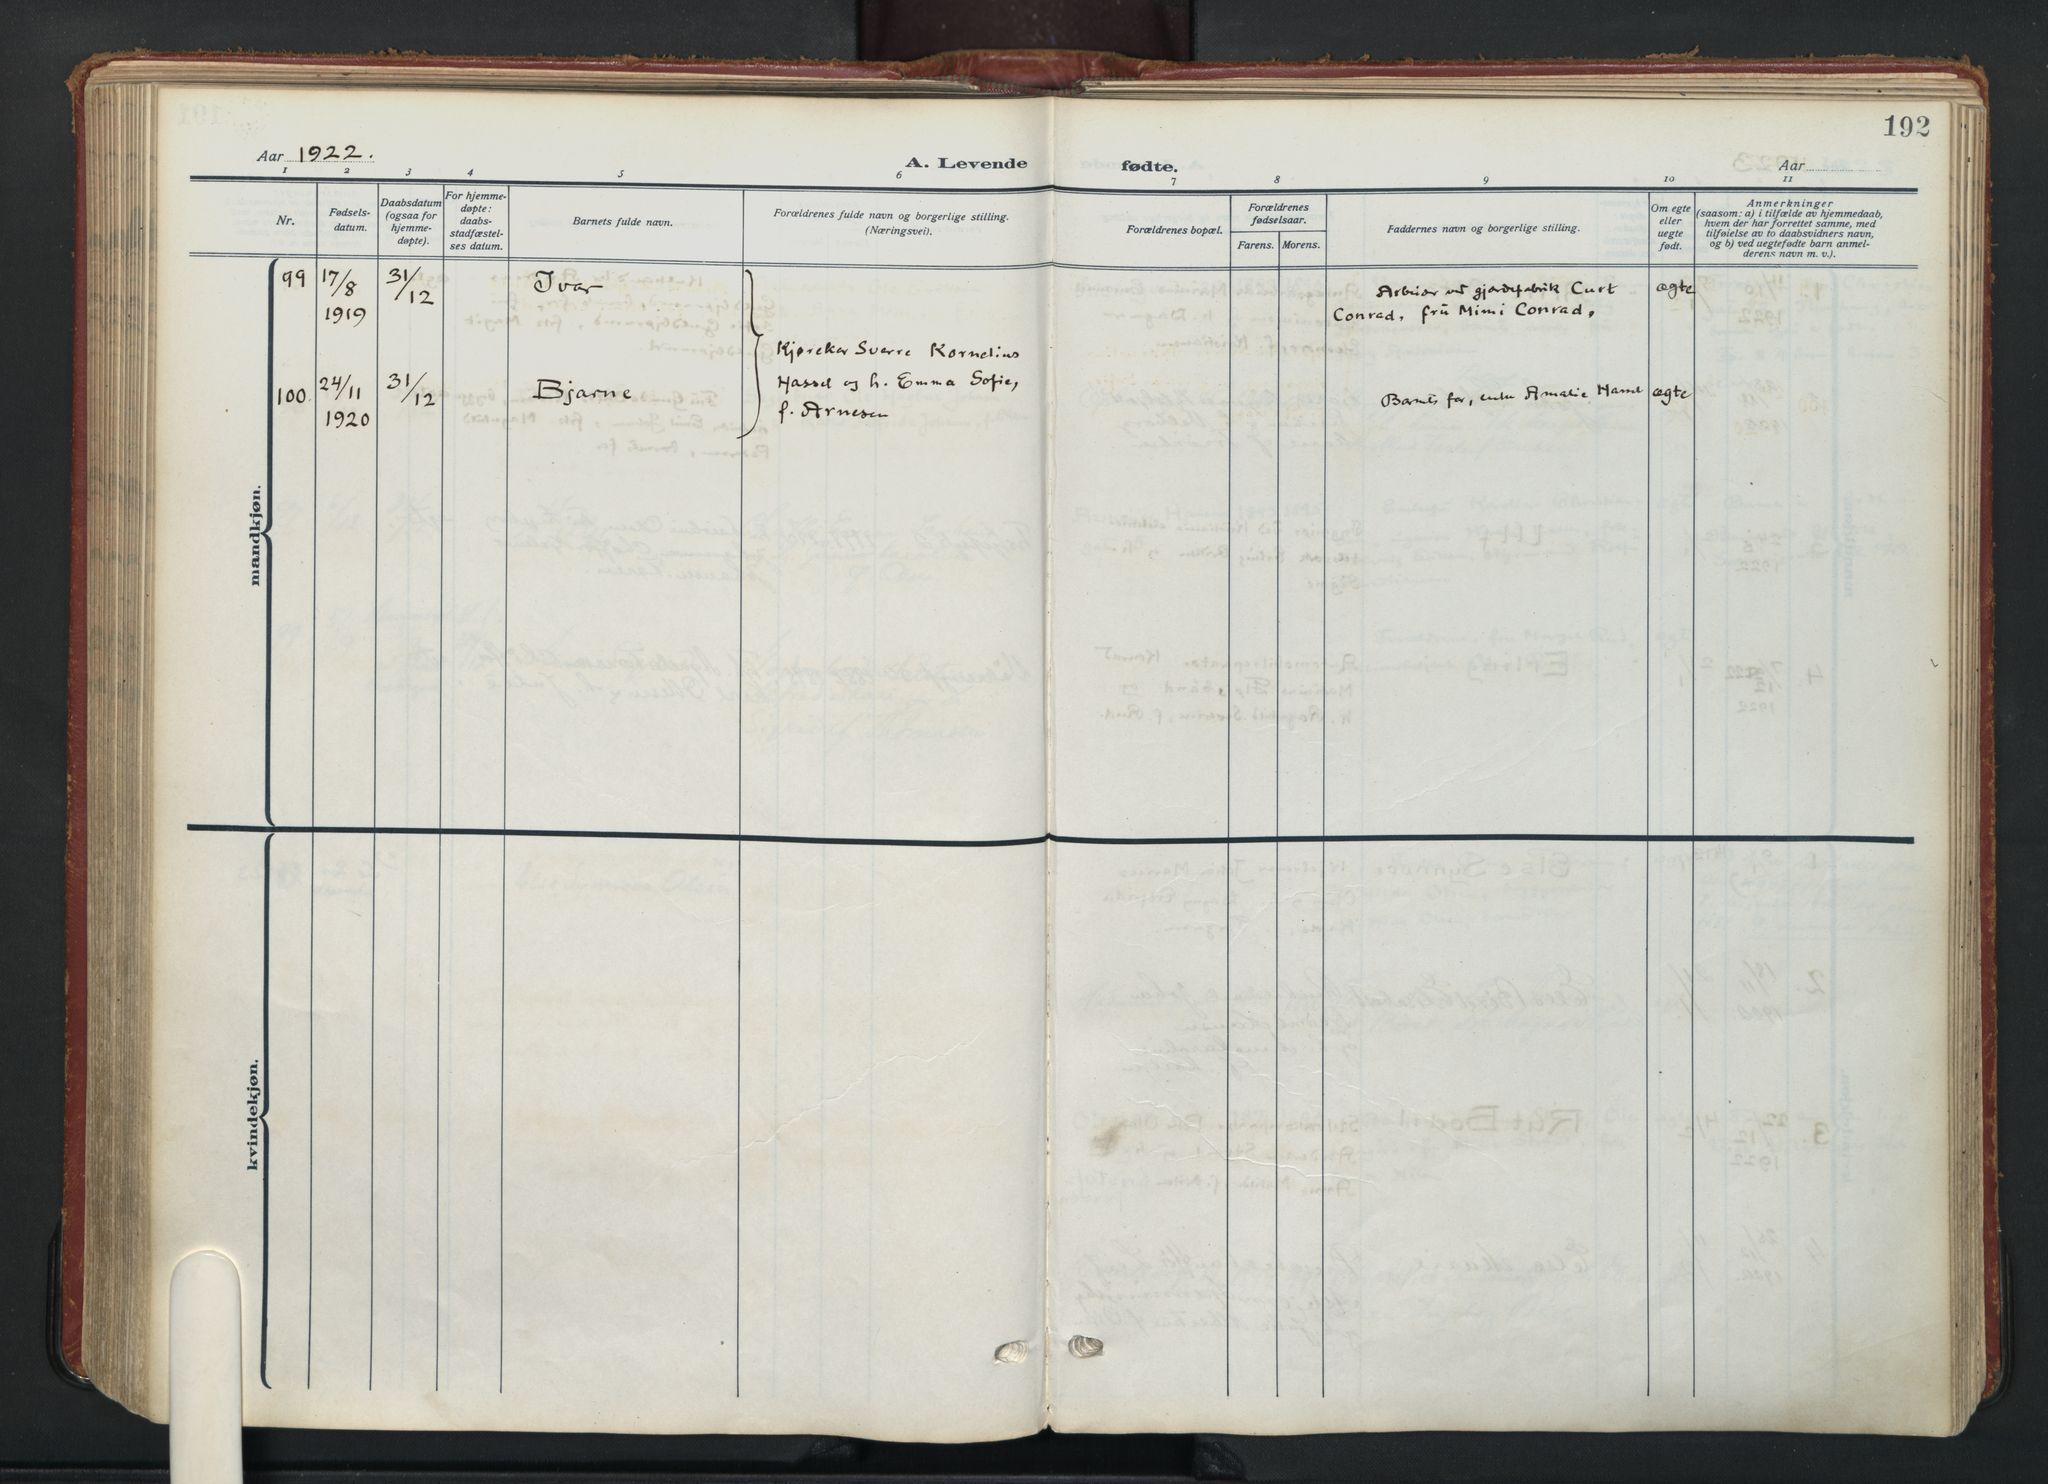 192
Aar 1922.
A. Levende fødte.
Aar
1 2 3 4 5 6 7 8 9 10 11
Nr.
Fødsels-
datum.
Daabsdatum
(ogsaa for
hjemme-
døpte).
For hjemme-
døpte:
daabs-
stadfæstel-
ses datum.
Barnets fulde navn.
Forældrenes fulde navn og borgerlige stilling.
(Næringsvei).
Forældrenes bopæl.
Forældrenes
fødselsaar.
Farens. Morens.
Faddernes navn og borgerlige stilling.
Om egte
eller
uegte
født.
Anmerkninger
(saasom: a) i tilfælde av hjemmedaab,
hvem der har forrettet samme, med
tilføielse av to daabsvidners navn,
og b) ved uegtefødte barn anmel-
derens navn m. v.).
mandkjøn.
99 17/8 31/12 Ivar Arbeider ved gjærdefabrik Curt ægte
1919 Conrad, frü Mimi Conrad,
Kjørekar Sverre Kornelius
100. 24/11 31/12 Bjarne Hassel og h. Emma Sofie, Barnets far, enke Amalie Hassel ægte
1920 f. Arnesen
kvindekjøn.